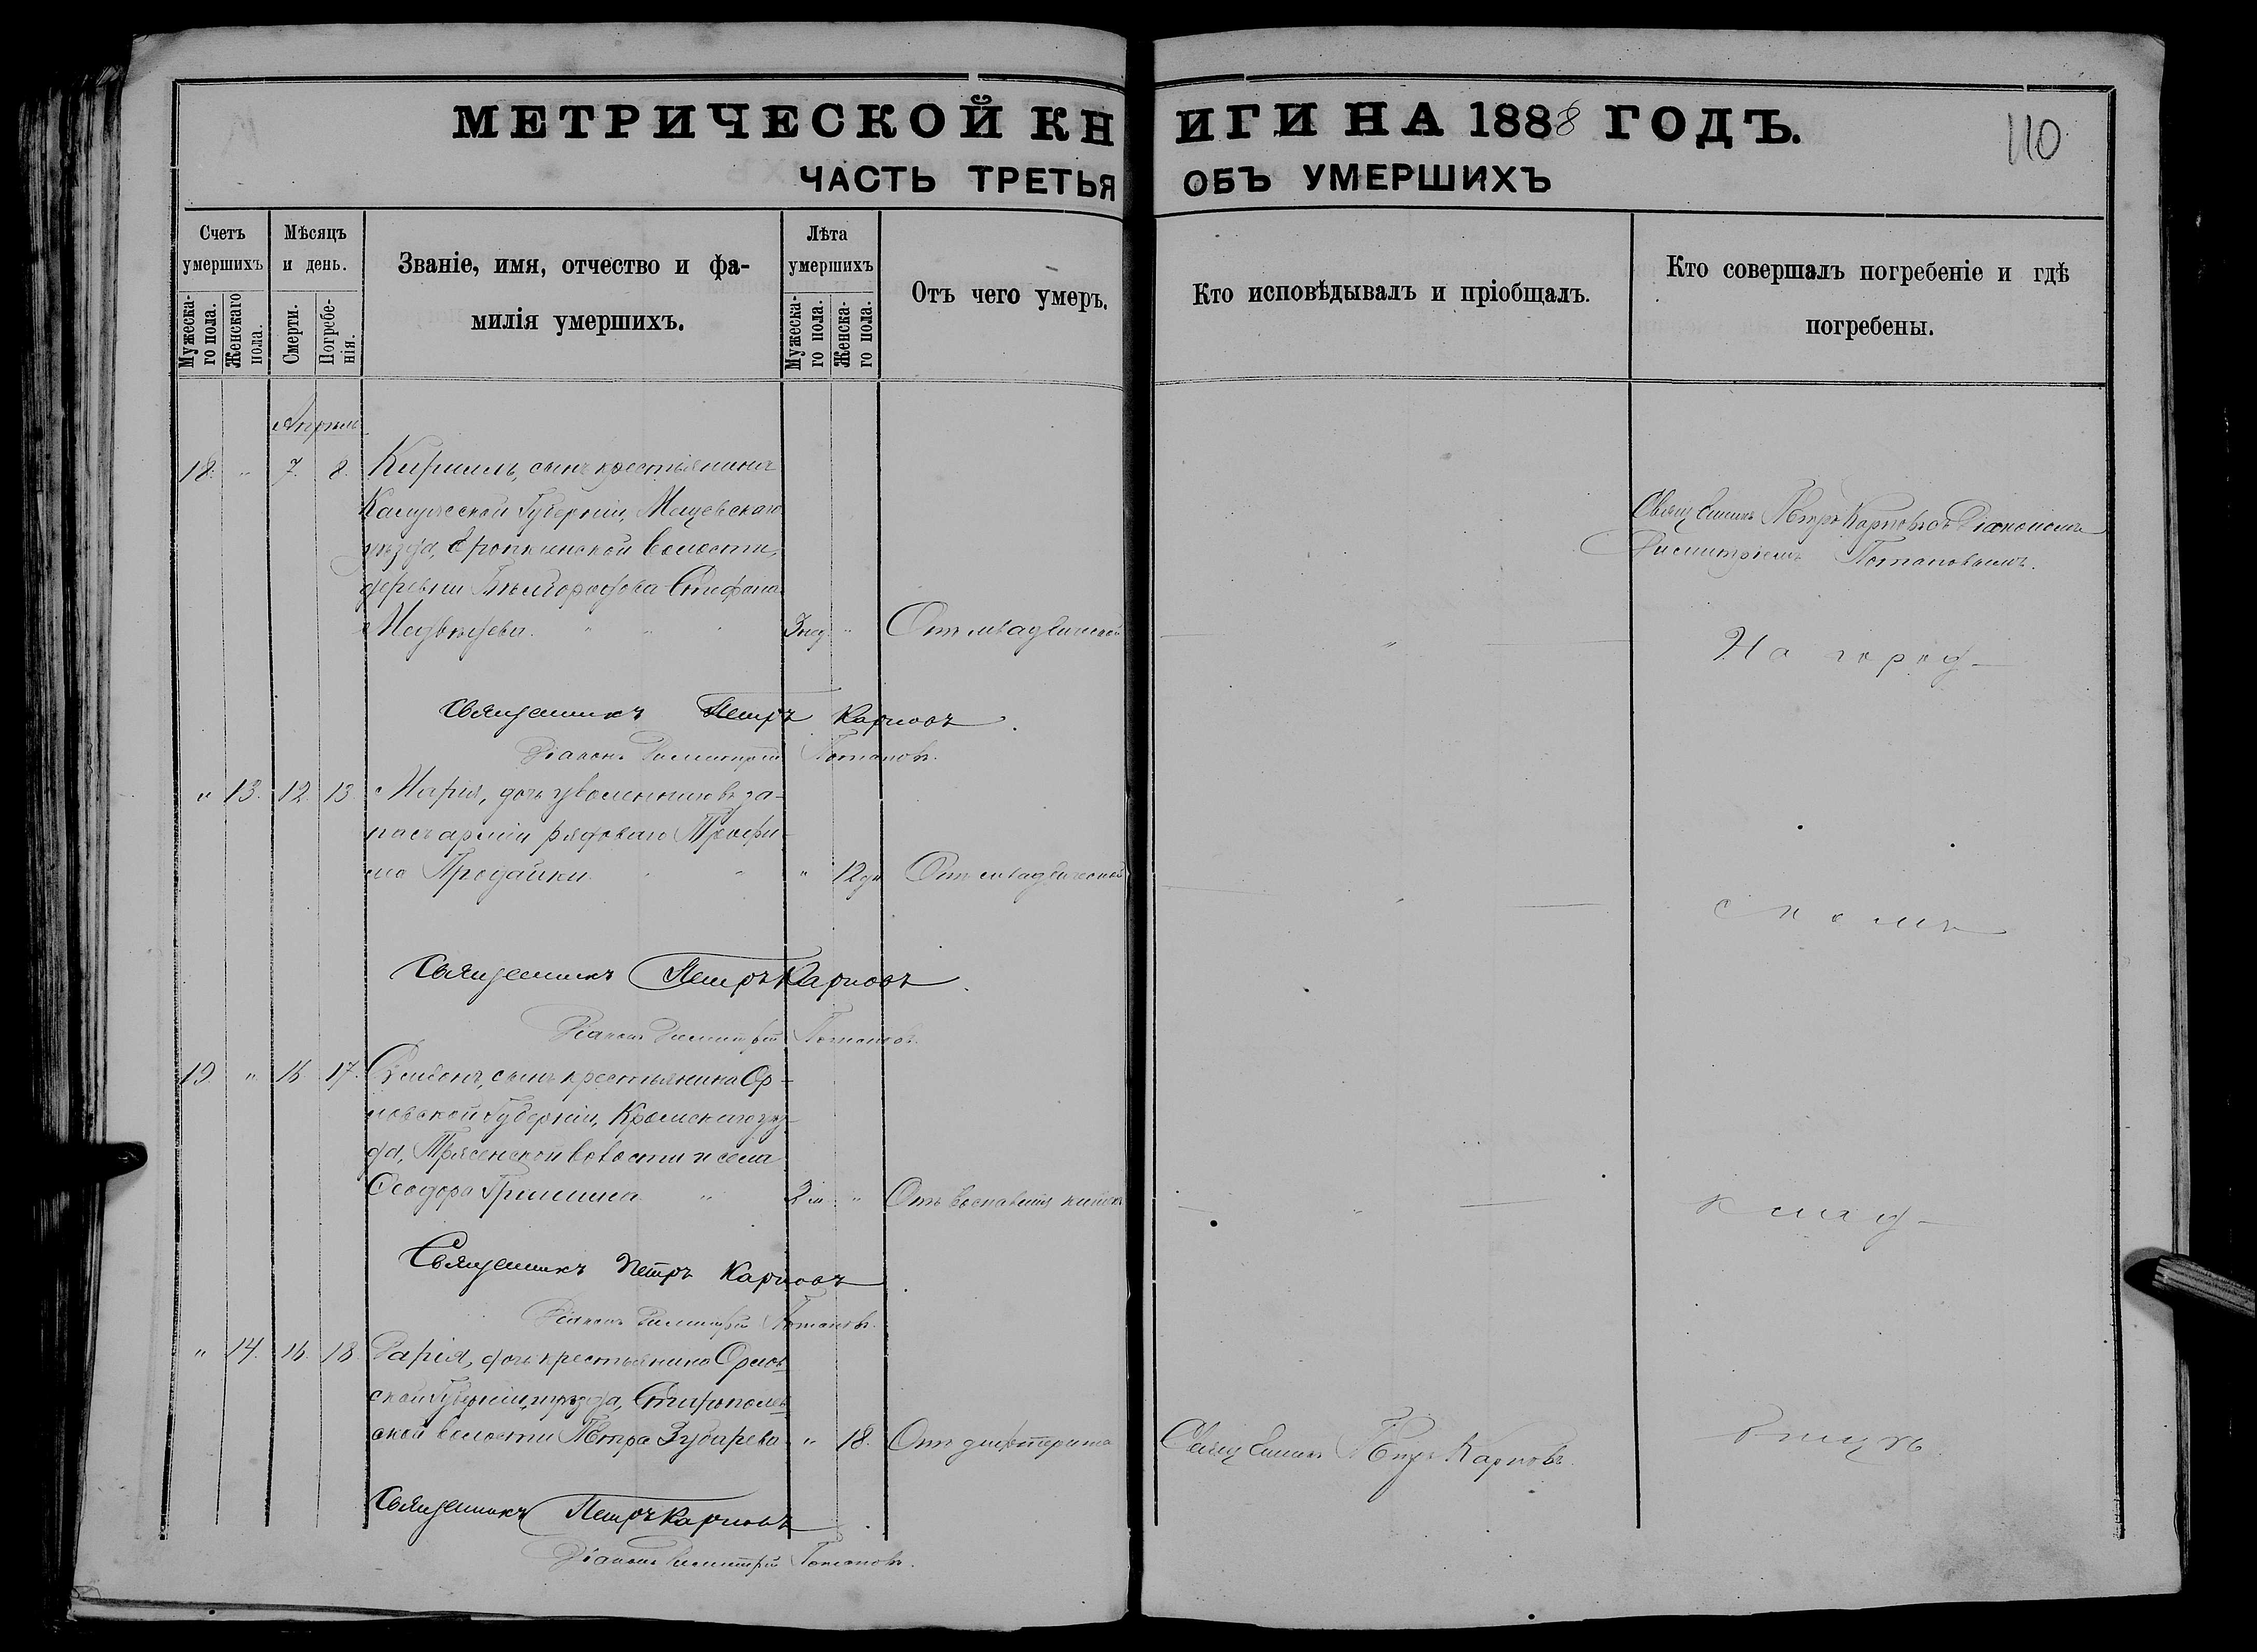 МЕТРИЧЕСКОЙ КНИГИ НА 1888 ГОДЪ.
110
ЧАСТЬ ТРЕТЬЯ ОБЪ УМЕРШИХЪ
Счетъ умершихъ
Мужескаго пола.
Женскаго пола.
Мѣсяцъ и день.
Смерти.
Погребенія.
Званіе, имя, отчество и фамилія умершихъ.
Лѣта умершихъ
Мужескаго пола.
Женскаго пола.
Отъ чего умеръ.
Кто исповѣдывалъ и пріобщалъ.
Кто совершалъ погребеніе и гдѣ погребены.
Апрѣль
18. " 7. 8. Кириллъ, сынъ крестьянина
Калужской Губерніи, Мещевскаго
уѣзда, волости,
деревни Стефана
Медвѣдева. " " 3 нед. " Отъ младенческой
Священникъ Петръ Карповъ съ Діакономъ
Димитріемъ Потаповымъ.
На город-
Священникъ Петръ Карповъ.
Діаконъ Димитрій Потаповъ.
" 13. 12. 13. Марія, дочь уволеннаго въ за-
пасъ арміи рядоваго Трофи-
ма " 12 дн Отъ младенческой
скомъ
Священникъ Петръ Карповъ.
Діаконъ Димитрій Потаповъ.
19. " 16. 17. сынъ крестьянина Ор-
ловской Губерніи, уѣз-
да, волости и села
Ѳеодора Гришина " 2 м. " Отъ воспаленія
клад-
Священникъ Петръ Карповъ.
Діаконъ Димитрій Потаповъ.
" 14. 16. 18. Дарія, дочь крестьянина Орлов
ской Губерніи, и уѣзда,
ской волости Петра Зубарева. " 18. Отъ дифтерита
Священникъ Петръ Карповъ.
бищѣ.
Священникъ Петръ Карповъ.
Діаконъ Димитрій Потаповъ.